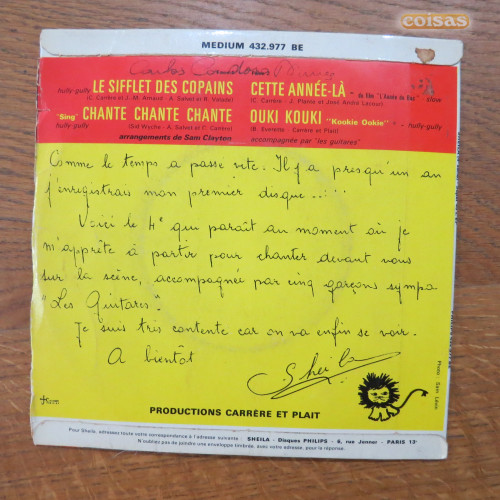 coisas
MEDIUM 432.977 BE
Carlos
hully-gully LE SIFFLET DES COPAINS
(C. Carrère et J. M. Arnaud - A. Salvet et R. Valade)
"Sing" CHANTE CHANTE CHANTE
hully-gully (Sid Wyche - A. Salvet et C. Carrère)
arrangements de Sam Clayton
CETTE ANNÉE-LÀ - du film "L'Année du Bac" - slow
(C. Carrère - J. Plante et José André Lacour)
OUKI KOUKI "Kookie Ookie" - hully-gully
(B. Everette - Carrère et Plait)
accompagnée par "les guitares"
Comme le temps a passé vite. Il y a presqu'un an
j'enregistrais mon premier disque.....
Voici le 4e qui paraît au moment où je
m'apprête à partir pour chanter devant vous
sur la scène, accompagnée par cinq garçons sympa
"Les Guitares".
Je suis très contente car on va enfin se voir.
A bientôt
Sheila
PRODUCTIONS CARRÈRE ET PLAIT
Photo : Sam Lévin
Pour Sheila, adressez toute votre correspondance à l'adresse suivante : SHEILA - Disques PHILIPS - 6, rue Jenner - PARIS 13e
N'oubliez pas de joindre une enveloppe timbrée, avec votre adresse, pour la réponse.